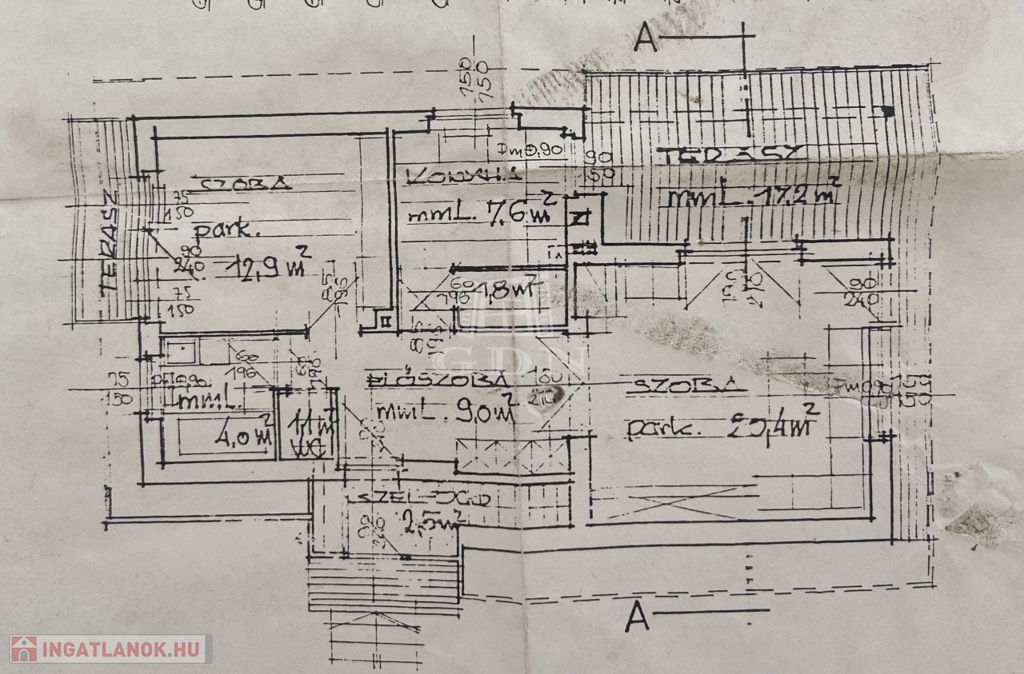 A
150
150
TERASZ
75
150
90
240
75
150
SZOBA
park.
12,9 m²
KONYHA
mmL. 7,6 m²
Pm 0,90
90
150
TERASZ
mmL. 17,2 m²
1,8 m²
60
196
85
196
GDN
75
150
60
196
mmL.
4,0 m²
1,1 m²
WC
ELŐSZOBA
mmL. 9,0 m²
160
210
SZOBA
park. 25,4 m²
90
240
Pm 0,90
150
SZÉLFOGÓ
2,5 m²
A
INGATLANOK.HU